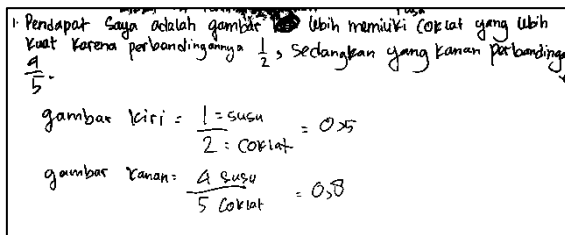 1. Pendapat saya adalah gambar lebih memiliki coklat yang lebih
kuat karena perbandingannya 1/2, sedangkan yang kanan perbanding
4/5.
gambar kiri = 1 = susu / 2 = coklat = 0,5
gambar kanan = 4 susu / 5 coklat = 0,8